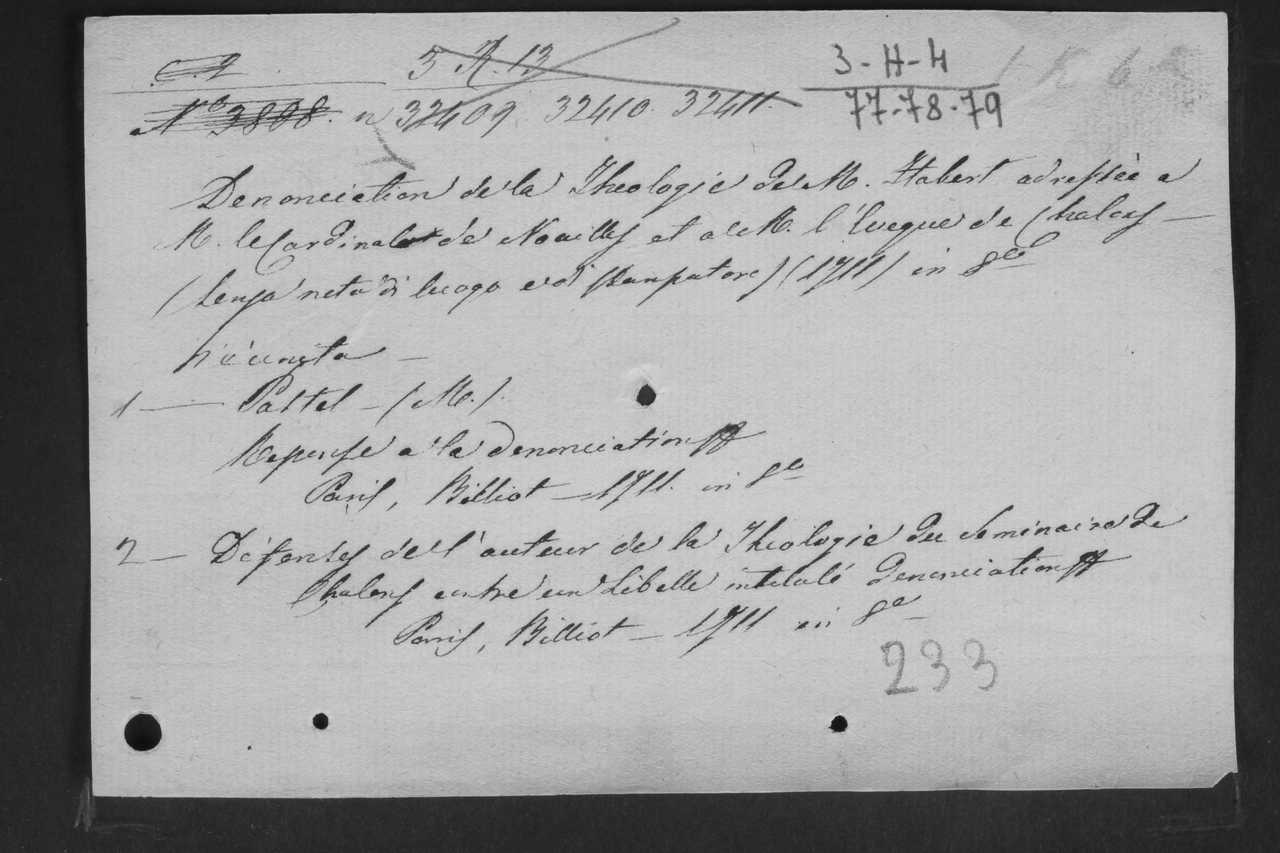 C. 9 3 R. 13 3-H-4
N.º 3808. n 32409 32410. 32411. 77-78-79
Denonciation de la Theologie de M. Habert adressée a
M. le Cardinal de Noailles et a M. l'Eveque de Chalons —
(Senza nota di luogo e di stampatore) (1711) in 8º
È unita —
1 — Pastel — (M.)
Reponse a la denonciation
Paris, Billiot — 1711. in 8º
2 — Défenses de l'auteur de la Theologie du Seminaire de
Chalons contre un Libelle intitulé Denonciation
Paris, Billiot — 1711 in 8º
233